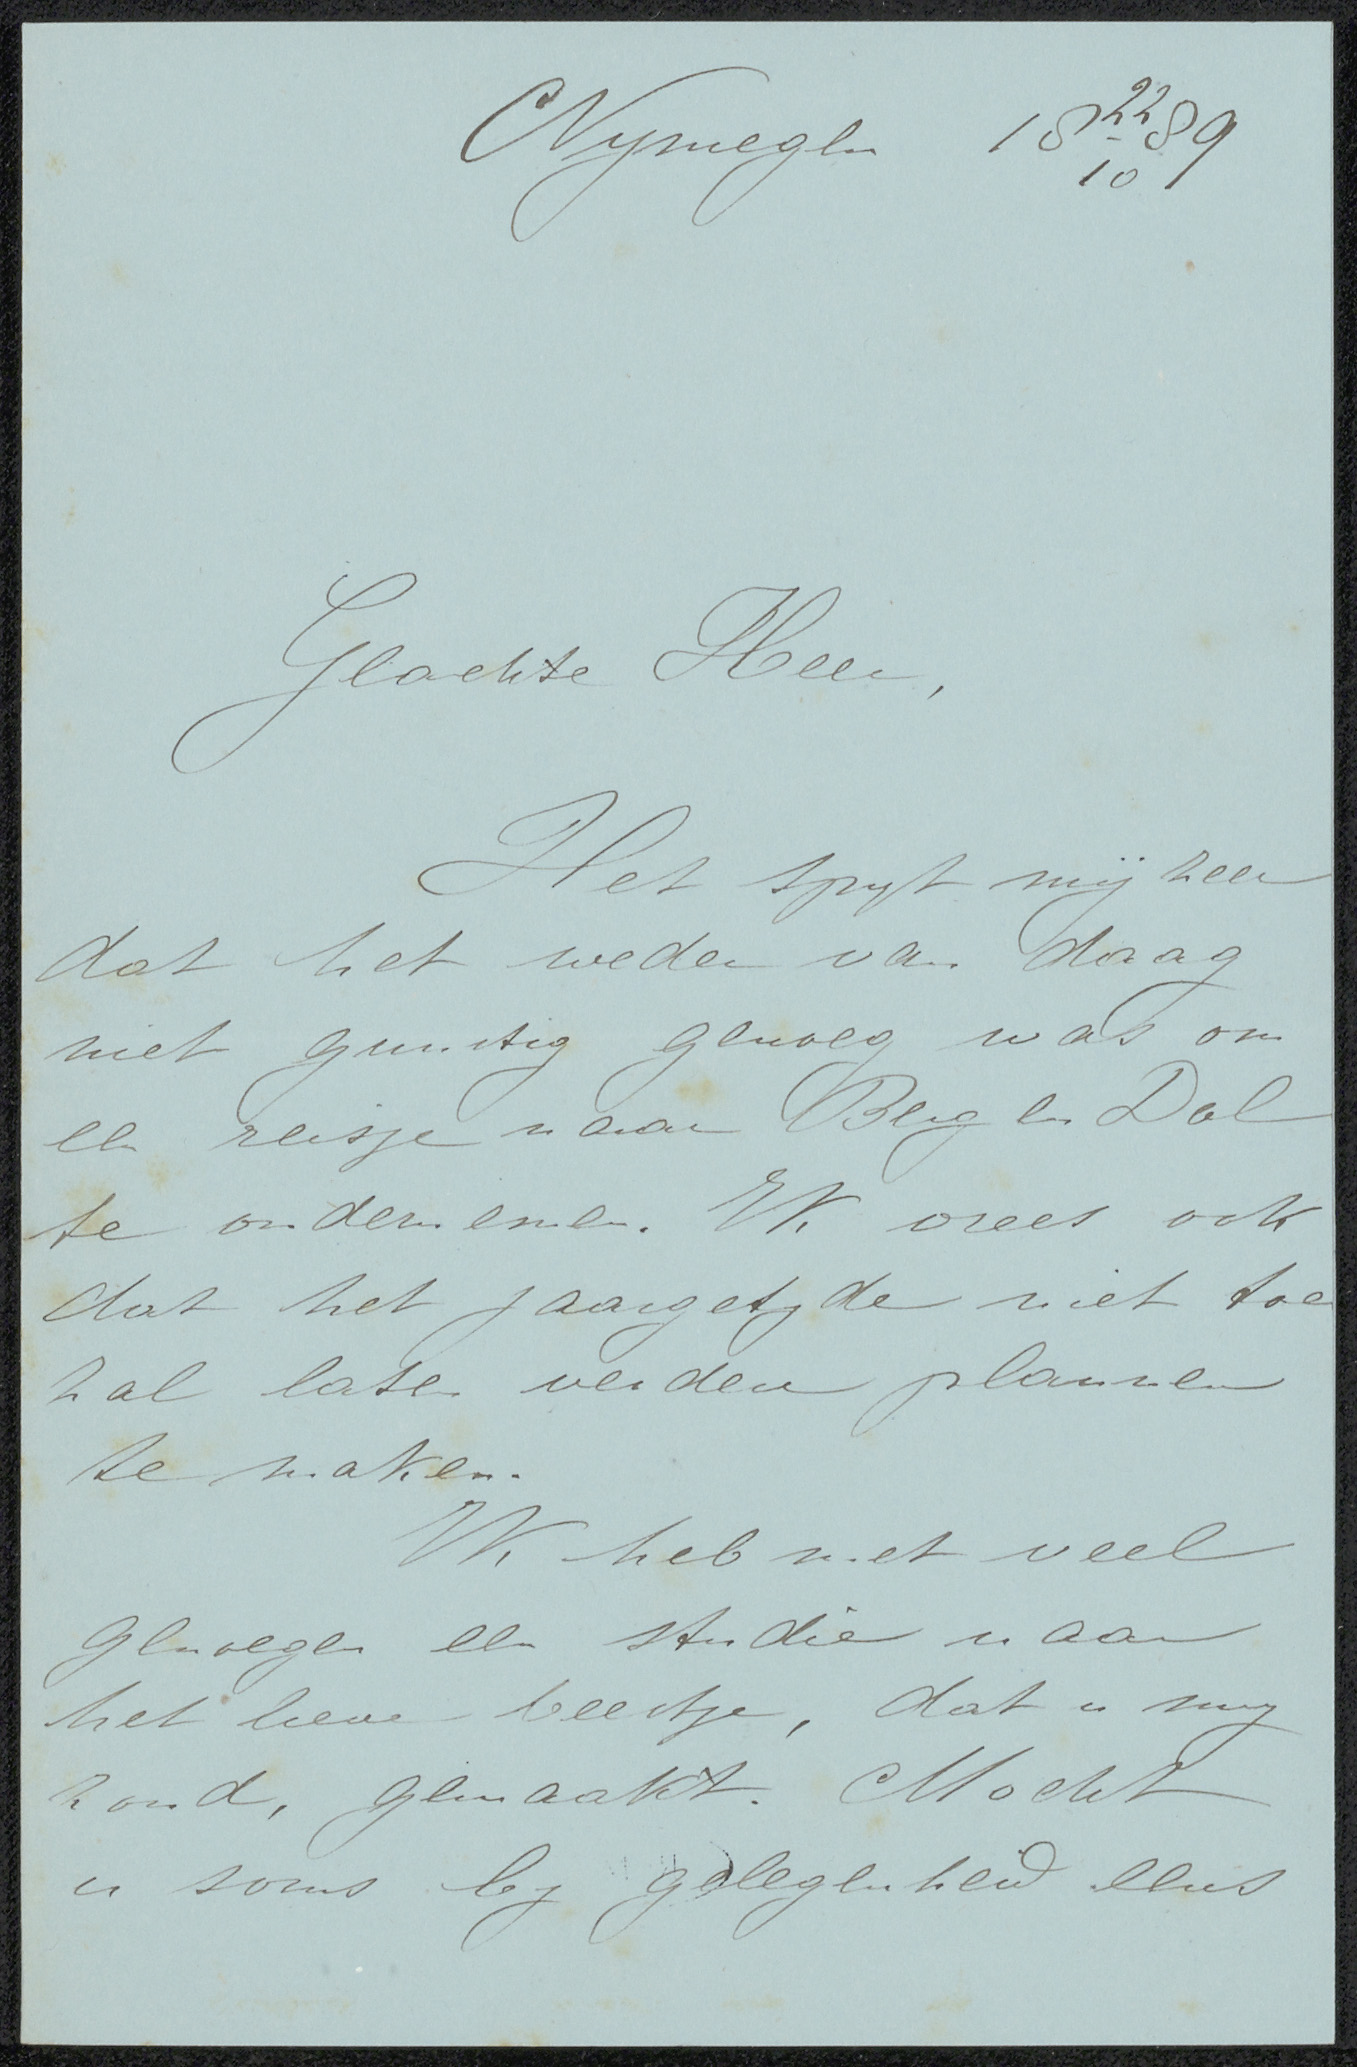 Nymegen 18 22/10 89
Geachte Heer,
Het spyt mij zeer
dat het weder van daag
niet gunstig genoeg was om
een reisje naar Berg en Dal
te ondernemen. Ik vrees ook
dat het jaargetyde niet toe
zal laten verdere plannen
te maken.
Ik heb met veel
genoegen een studie naar
het lieve beestje, dat u my
zond, gemaakt. Mocht
u soms by gelegenheid eens